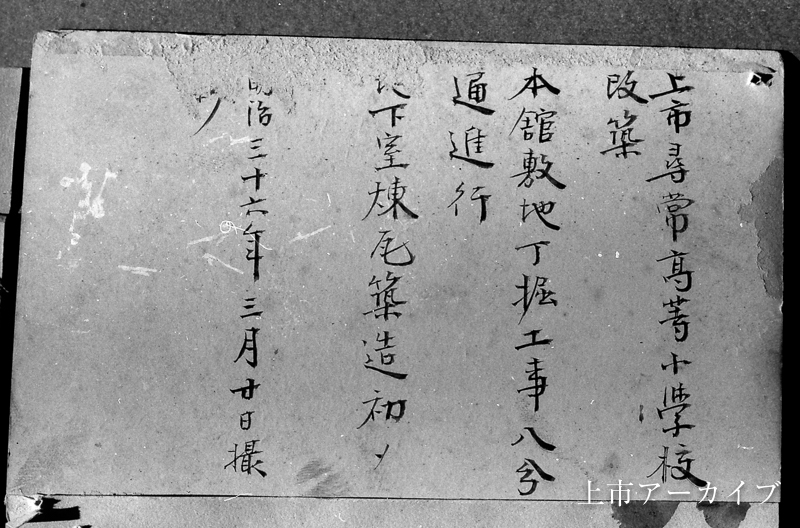 上市尋常高等小學校
改築
本舘敷地丁掘工事八分
通進行
地下室煉瓦築造初メ
明治三十六年三月廿日撮
上市アーカイブ